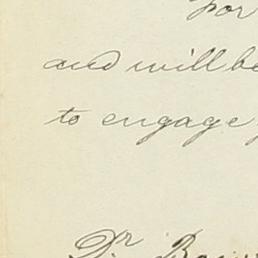 for
and will be
to engage
Dr